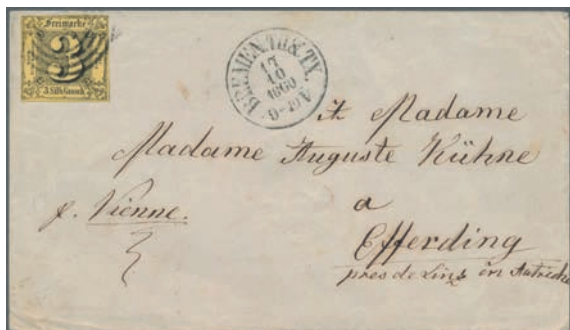 Freimarke
3
3 Silb. Grosch.
BREMEN.TH&TX.
17
10
1860
A Madame
Madame Auguste Kühne
p. Vienne.
a
Efferding
pres de Linz en Autriche